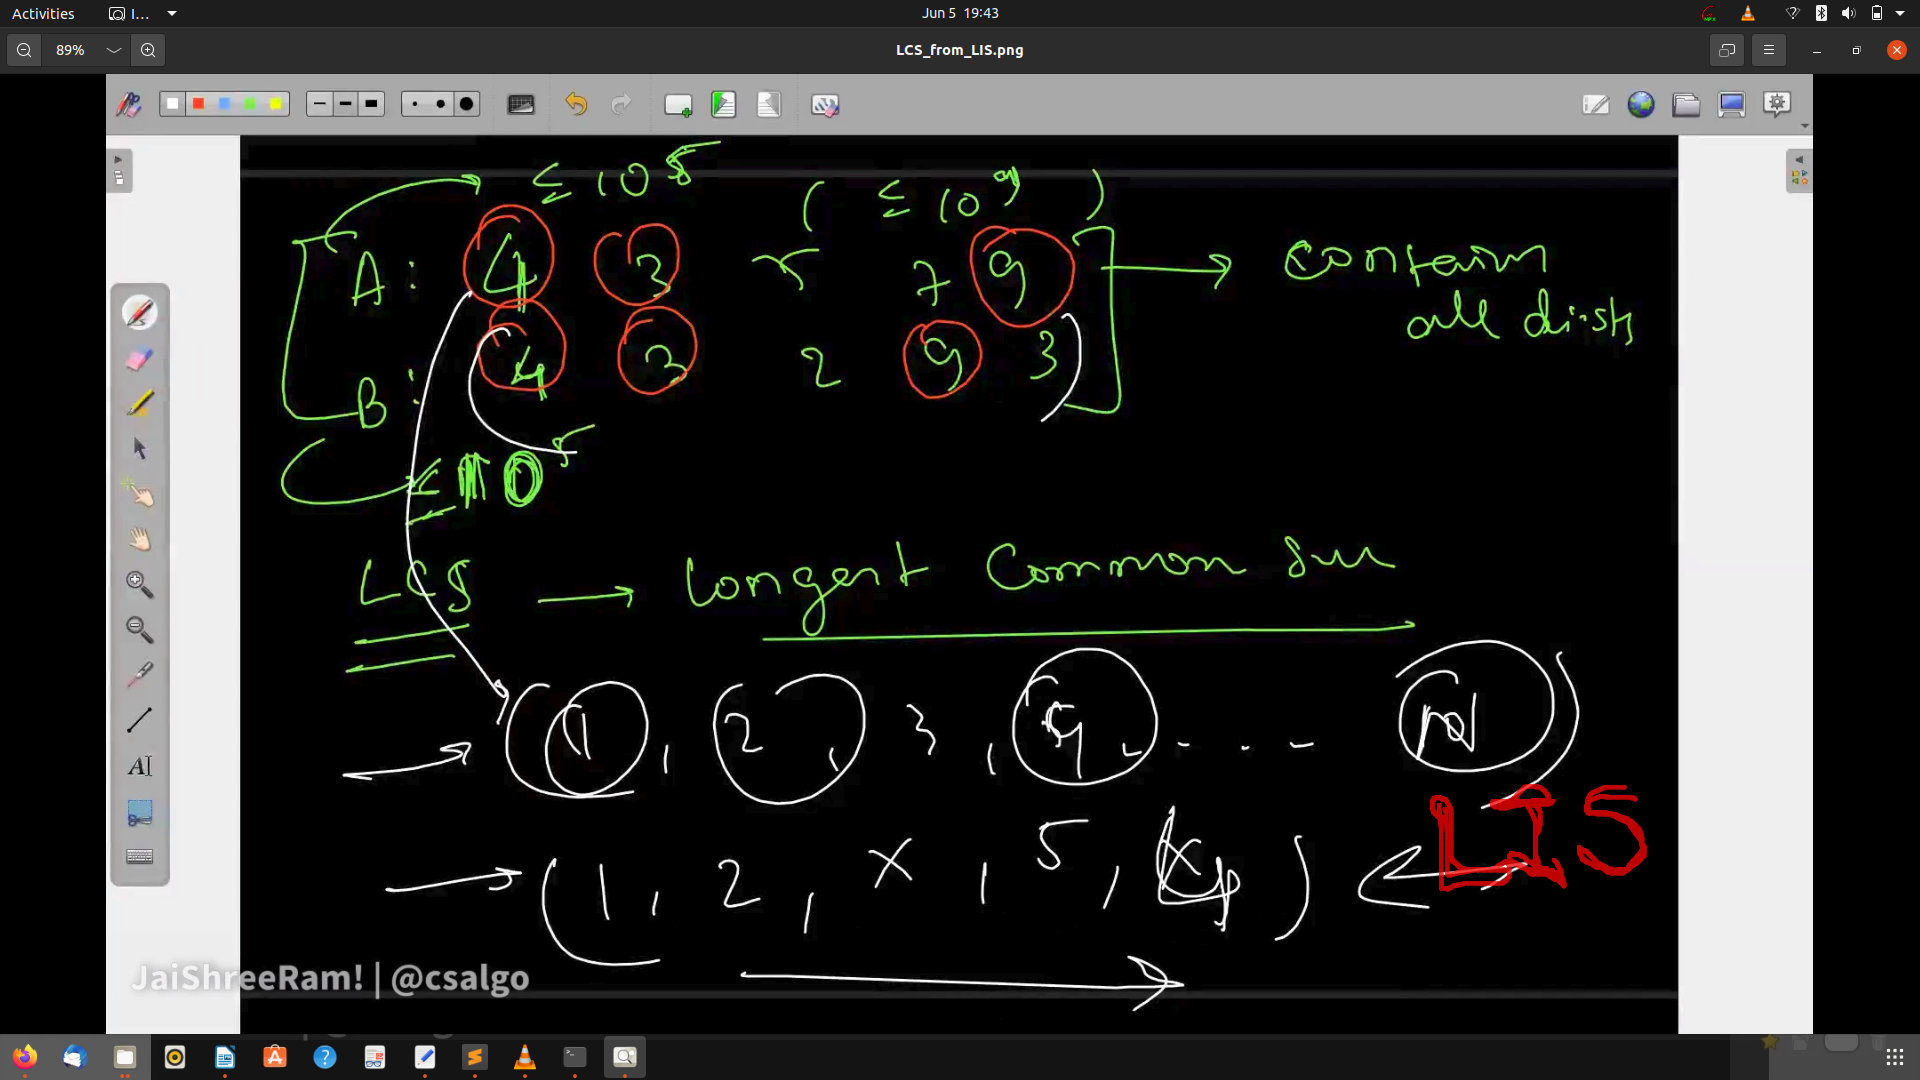 Activities I... Jun 5 19:43
89% LCS_from_LIS.png
≤ 10^5 ( ≤ 10^9 )
A: 4 3 5 7 9 → contain
all dist
B: 4 3 2 9 3
≤ 10^5
LCS → longest Common Su
1, 2, 3, 4, - . . - N
LIS
(1, 2, x, 5, 4)
JaiShreeRam! | @csalgo